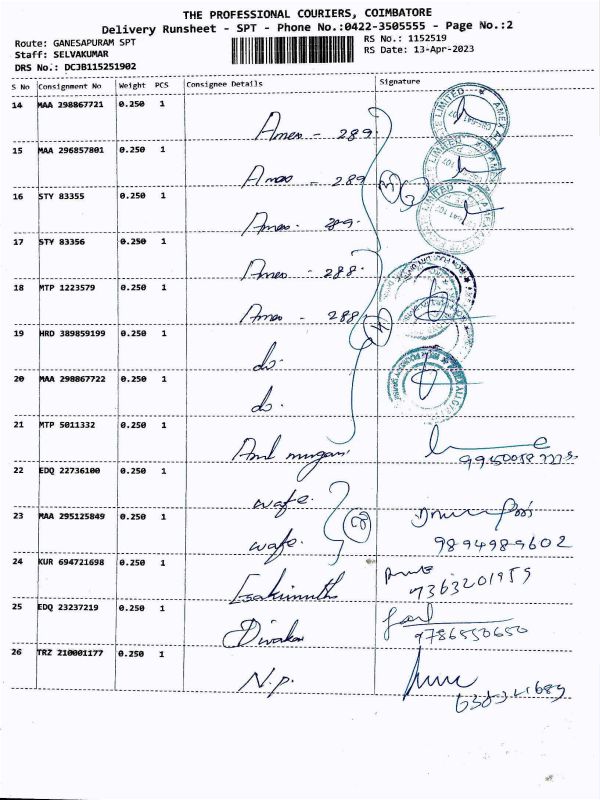 THE PROFESSIONAL COURIERS, COIMBATORE
Delivery Runsheet - SPT - Phone No.:0422-3505555 - Page No.:2
Route: GANESAPURAM SPT
RS No.: 1152519
Staff: SELVAKUMAR
RS Date: 13-Apr-2023
DRS No.: DCJB115251902
S No Consignment No Weight PCS Consignee Details Signature
14 MAA 298867721 0.250 1
Amex - 289
15 MAA 296857801 0.250 1
Amex - 289
16 STY 83355 0.250 1
Amex. 289.
17 STY 83356 0.250 1
Amex - 288.
18 MTP 1223579 0.250 1
Amex - 288
19 HRD 389859199 0.250 1
do.
20 MAA 298867722 0.250 1
do.
21 MTP 5011332 0.250 1
22 EDQ 22736100 0.250 1
wafe.
23 MAA 295125849 0.250 1
9894989602
wafe.
24 KUR 694721698 0.250 1
Esakimuthu
25 EDQ 23237219 0.250 1
9786550650
Divakar
26 TRZ 210001177 0.250 1
N.p.